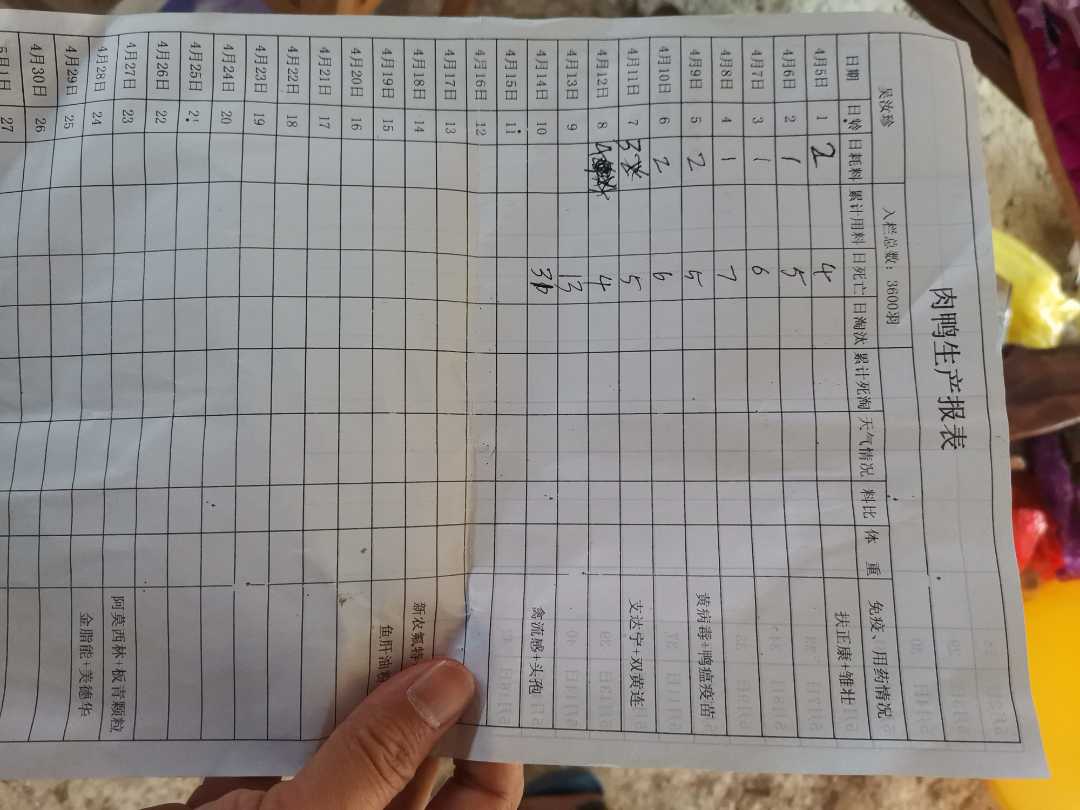 肉鸭生产报表
吴汝珍 入栏总数：3600羽
日期 日龄 日耗料 累计用料 日死亡 日淘汰 累计死淘 天气情况 料比 体重 免疫、用药情况
4月5日 1 2 4 扶正康+雏壮
4月6日 2 1 5
4月7日 3 1 6
4月8日 4 1 7
4月9日 5 2 5 黄病毒+鸭瘟疫苗
4月10日 6 2 6
4月11日 7 3 5 支达宁+双黄连
4月12日 8 4 4
4月13日 9 13
4月14日 10 36 禽流感+头孢
4月15日 11
4月16日 12
4月17日 13
4月18日 14 新农氟特
4月19日 15 鱼肝油
4月20日 16
4月21日 17
4月22日 18
4月23日 19
4月24日 20
4月25日 21
4月26日 22
4月27日 23 阿莫西林+板青颗粒
4月28日 24 金脂能+美德华
4月29日 25
4月30日 26
5月1日 27